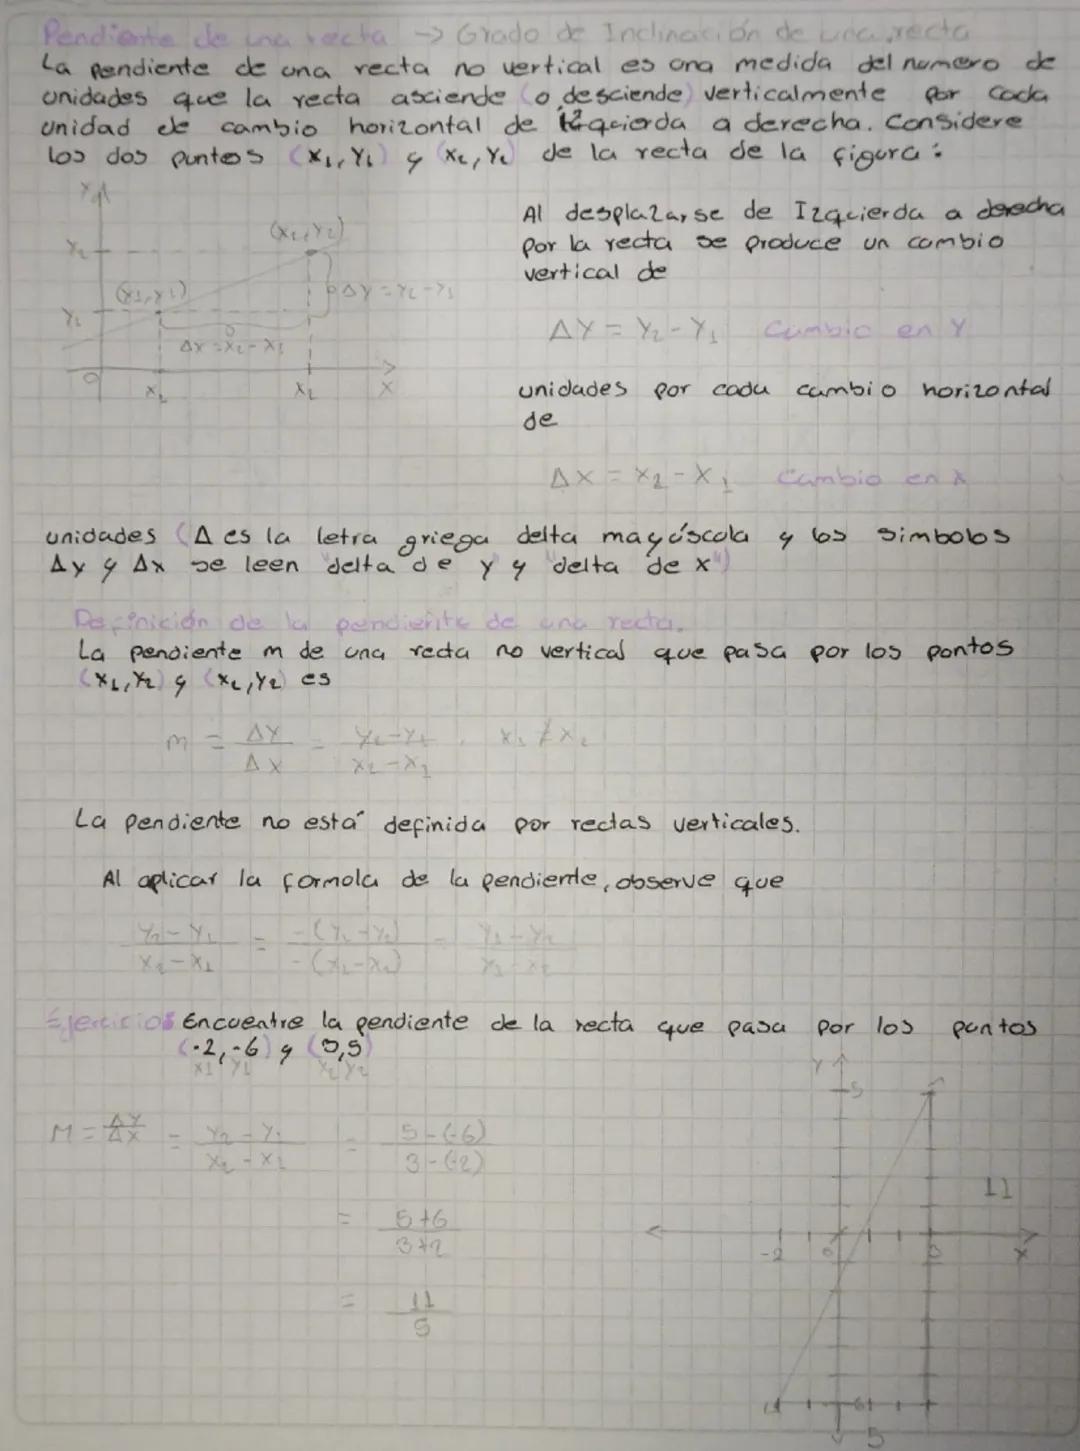 Pendiente de una recta → Grado de Inclinación de una recta
La pendiente de una recta no vertical es una medida del numero de
unidades que la recta asciende (o desciende) verticalmente por cada
unidad de cambio horizontal de izquierda a derecha. Considere
los dos puntos (x₁, y₁) y (x₂, y₂) de la recta de la figura:
Y
Y₂
(x₂, y₂)
(x₁, y₁)
Δy = y₂ - y₁
Y₁
Δx = x₂ - x₁
0
x₁
x₂
X
Al desplazarse de Izquierda a derecha
por la recta se produce un cambio
vertical de
ΔY = Y₂ - Y₁ Cambio en Y
unidades por cada cambio horizontal
de
ΔX = X₂ - X₁ Cambio en X
unidades (Δ es la letra griega delta mayúscula y los simbolos
Δy y Δx se leen "delta de y" y "delta de x")
Definición de la pendiente de una recta.
La pendiente m de una recta no vertical que pasa por los puntos
(x₁, Y₂) y (x₂, Y₂) es
m = ΔY/ΔX = Y₂-Y₁/X₂-X₁ , X₁ ≠ X₂
La pendiente no está definida por rectas verticales.
Al aplicar la formola de la pendiente, observe que
Y₂-Y₁/X₂-X₁ = -(Y₁-Y₂)/-(X₁-X₂) = Y₁-Y₂/X₁-X₂
Ejercicios Encuentre la pendiente de la recta que pasa por los puntos
(-2, -6) y (3, 5)
x1 y1 x₂ y₂
M = ΔY/ΔX = Y₂-Y₁/X₂-X₁ = 5-(-6)/3-(-2)
= 5+6/3+2
= 11/5
Y
5
11
-2
0
3
X
-6
5